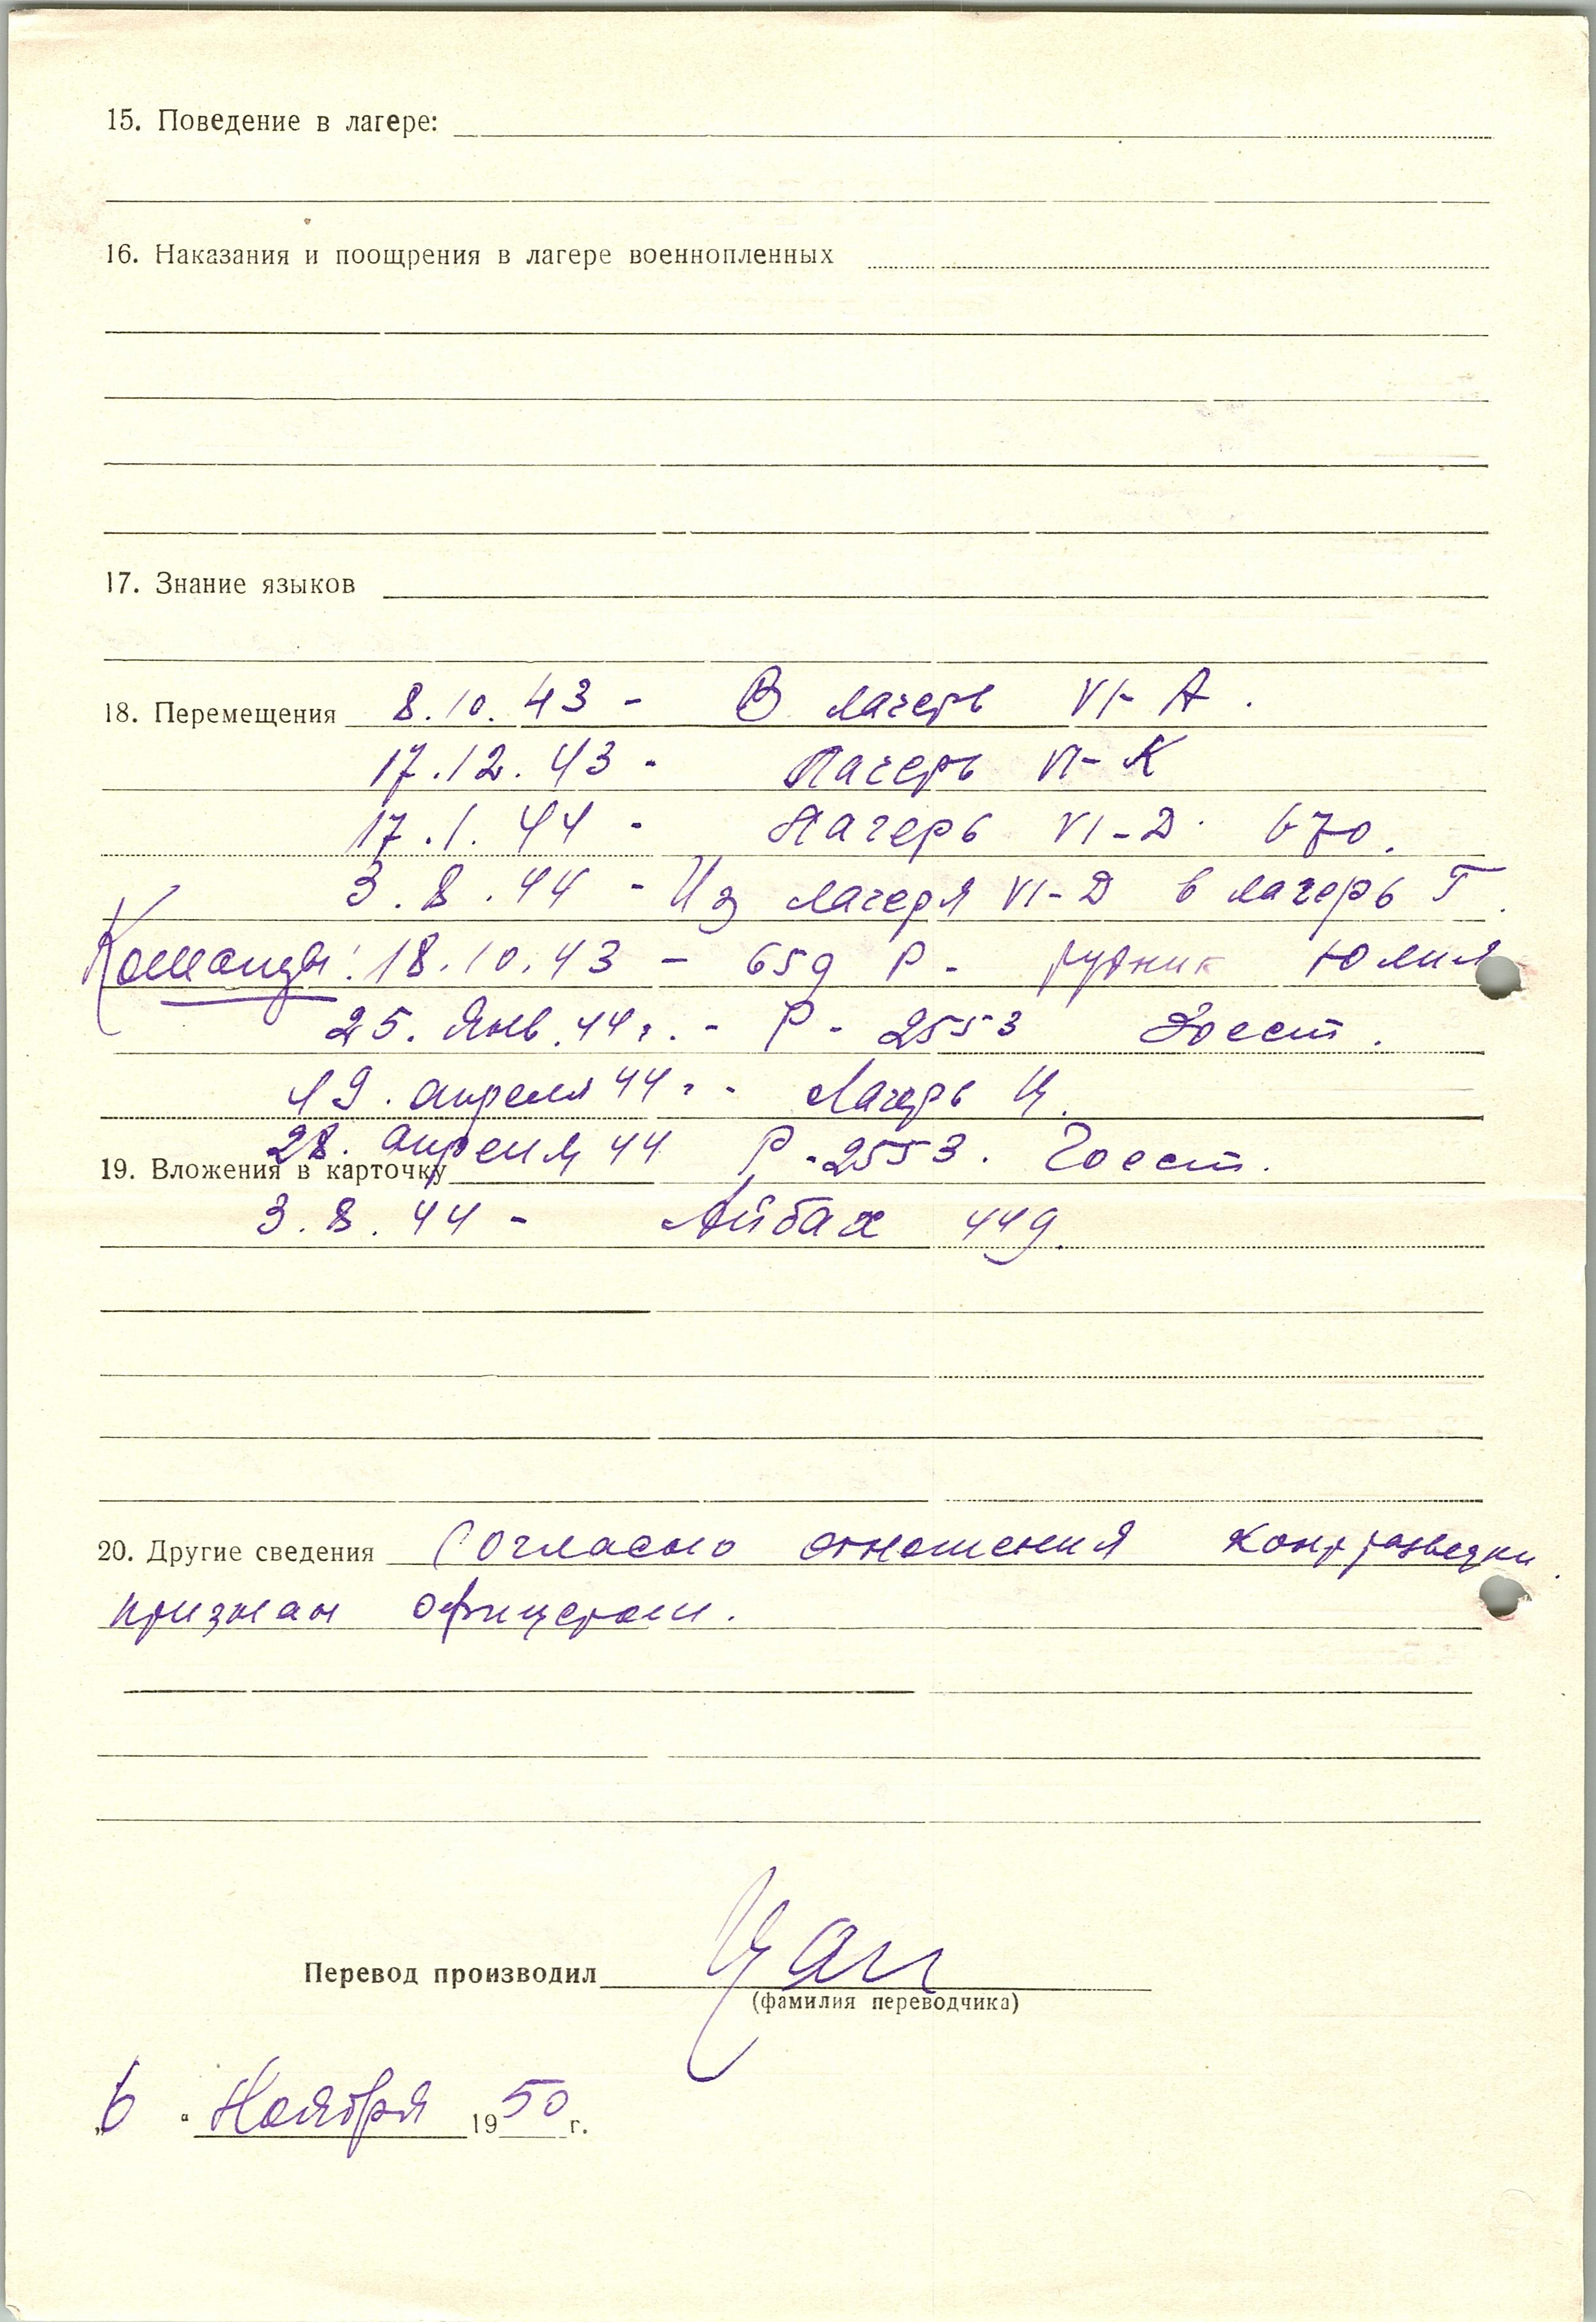 15. Поведение в лагере:
16. Наказания и поощрения в лагере военнопленных
17. Знание языков
18. Перемещения 8.10.43 - В лагерь VI-A.
17.12.43 - Лагерь VI-К
17.1.44 - Лагерь VI-D. 670.
3.8.44 - Из лагеря VI-D в лагерь Г.
Команды: 18.10.43 - 659 Р - рудник Юлия
25. Янв. 44 г. - Р - 2553 Зоест.
19. апреля 44 г. - Лагерь Ц.
28. апреля 44 Р - 2553. Зоест.
19. Вложения в карточку
3.8.44 - Айбах 449.
20. Другие сведения Согласно отношения контрразведки
признан офицером.
Перевод производил Цан
(фамилия переводчика)
„6 “ Ноября 1950 г.